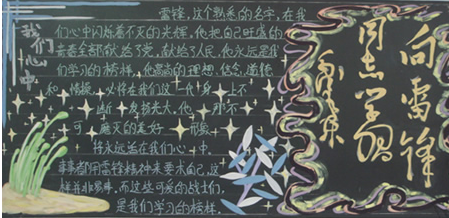 向雷锋
同志学习
毛泽东
我们心中
雷锋,这个熟悉的名字,在我
们心中闪烁着不灭的光辉,他把自己旺盛的
青春全部献给了,献给了人民,他永远是我
们学习的榜样,他高尚的理想、信念、道德
和情操,必将在我们这一代身上不
断发扬光大,他那不
可磨灭的美好形象
将永远活在我们心中.
事事都用雷锋精神来要求自己,这
样并非易事,而这些可爱的战士们,
是我们学习的榜样.